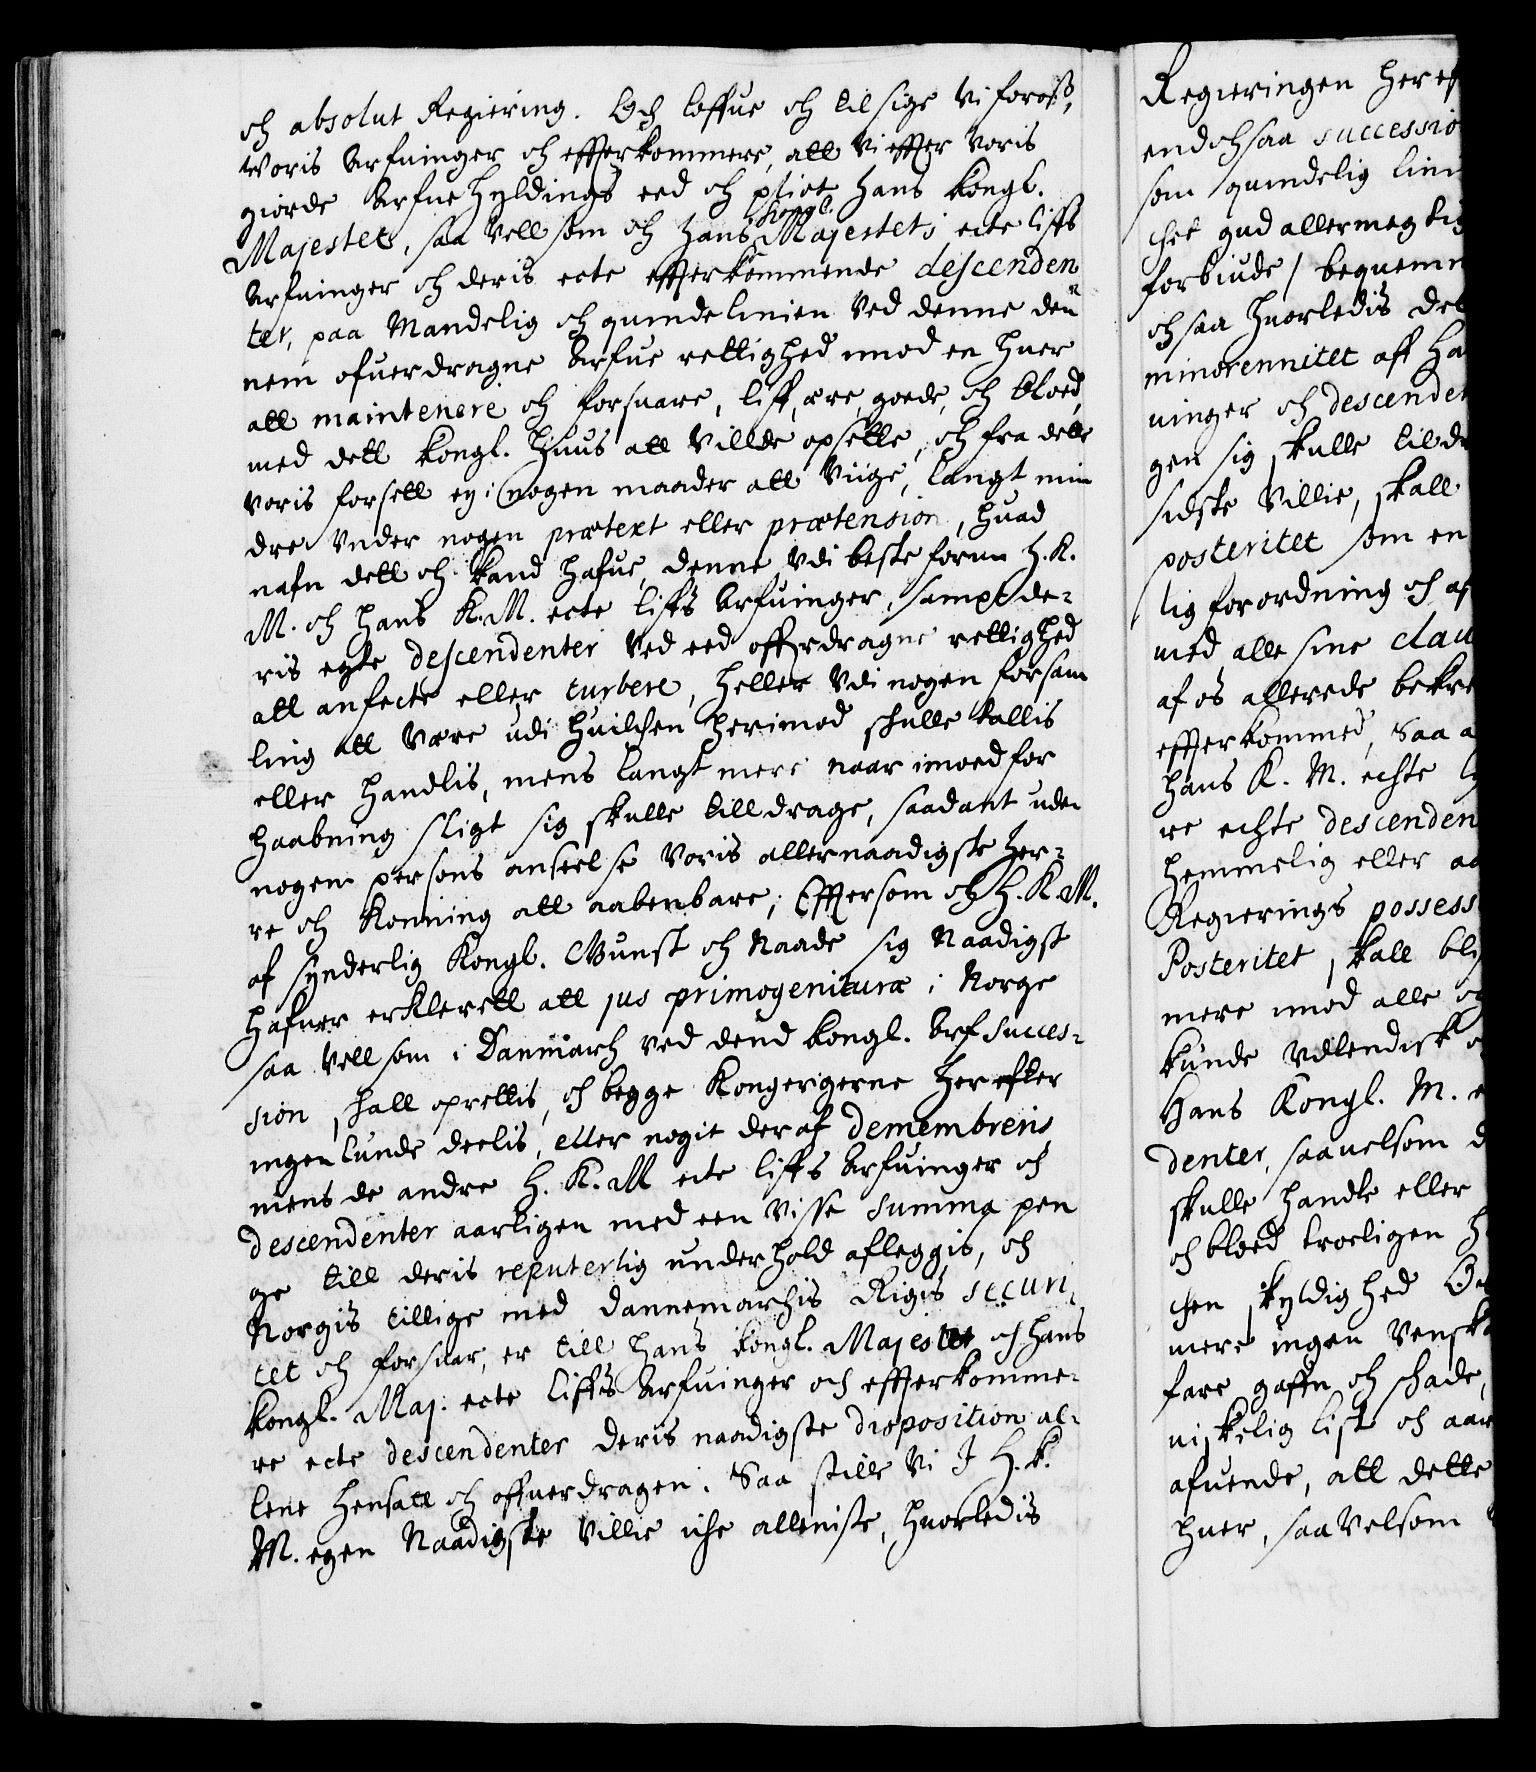 och absolut Regiering. Och loffue och tilsige Vi foroß,
Woris Arfuinger och effterkommere, att Vi effter Voris
giorde Arfue Hyldings eed och plict Hans Kongl.
Majestet, saa Vell som och Hans Kongl. Majestets ecte liffs
Arfuinger och deris ecte effterkommende descenden
ter, paa Mandelig och quinde linien Ved denne den
nem ofuerdragne Arfue rettighed imod en huer
att maintenere och forsuare, liff, ære, goede, och bloed,
med dett Kongl. Huus att Villde opsette, och fra dette
Voris forsett ey i nogen maader att Viige, langt min
dre Vnder nogen prætext eller prætension, huad
nafn dett och kand hafue, denne Vdi beste form H. K.
M. och Hans K. M. ecte liffs Arfuinger, sampt de-
ris egte descendenter Ved eed offerdragne rettighed
att anfecte eller turbere, heller Vdi nogen forsam
ling att Være udi huilchen herimod schulle tallis
eller handlis, mens langt mere naar imoed for
haabning sligt sig skulle till drage, saadant uden
nogen persons anseelse Voris allernaadigste Her-
re och Konning att aabenbare; Effter som och H. K. M.
af synderlig Kongl. Gunst och Naade sig Naadigst
hafuer erklerett att jus primogenituræ i Norge
saa Vell som i Danmarch ved dend Kongl. Arf succes-
sion, shall oprettis, och begge Kongerigerne her efter
ingenlunde deelis, eller nogit deraf demembreris
mens de andre H. K. M ecte liffs Arfuinger och
descendenter aarligen med een Visse summa pen
ge till deris reputerlig underhold afleggis, och
Norgis tillige med Dannemarchis Rigis securi
tet och forsuar, er till Hans Kongl. Majestet och Hans
Kongl. Maj. ecte liffs Arfuinger och effterkomme-
re ecte descendenter deris naadigste disposition al-
lene hensatt och offuerdragen. Saa stille Vi I H. K.
M. egen Naadigste Villie iche alleniste, huorledis
Regieringen her ef
endochsaa successio
som quindelig lini
chet gud allermegtig
forbiude / bequem
och saa huorledis det
minorennitet aff Ha
uinger och descende
gen sig skulle tildr
sidste Villie, skall
posteritet som en
lig forordning och af
med alle sine clau
af os allerede bekre
effterkommed, Saa a
Hans K. M. echte l
re echte descenden
hemmelig eller aa
Regierings possess
Posteritet skall bli
mere imod alle og
kunde Vdlendisk
Hans Kongl. M. e
denter, saauelsom d
skulle handle eller
och bloed troeligen h
chen skyldighed
mere ingen Vensk
fare gafn och schade,
niskelig list och aar
afuende, att dette
huer, saa Velsom